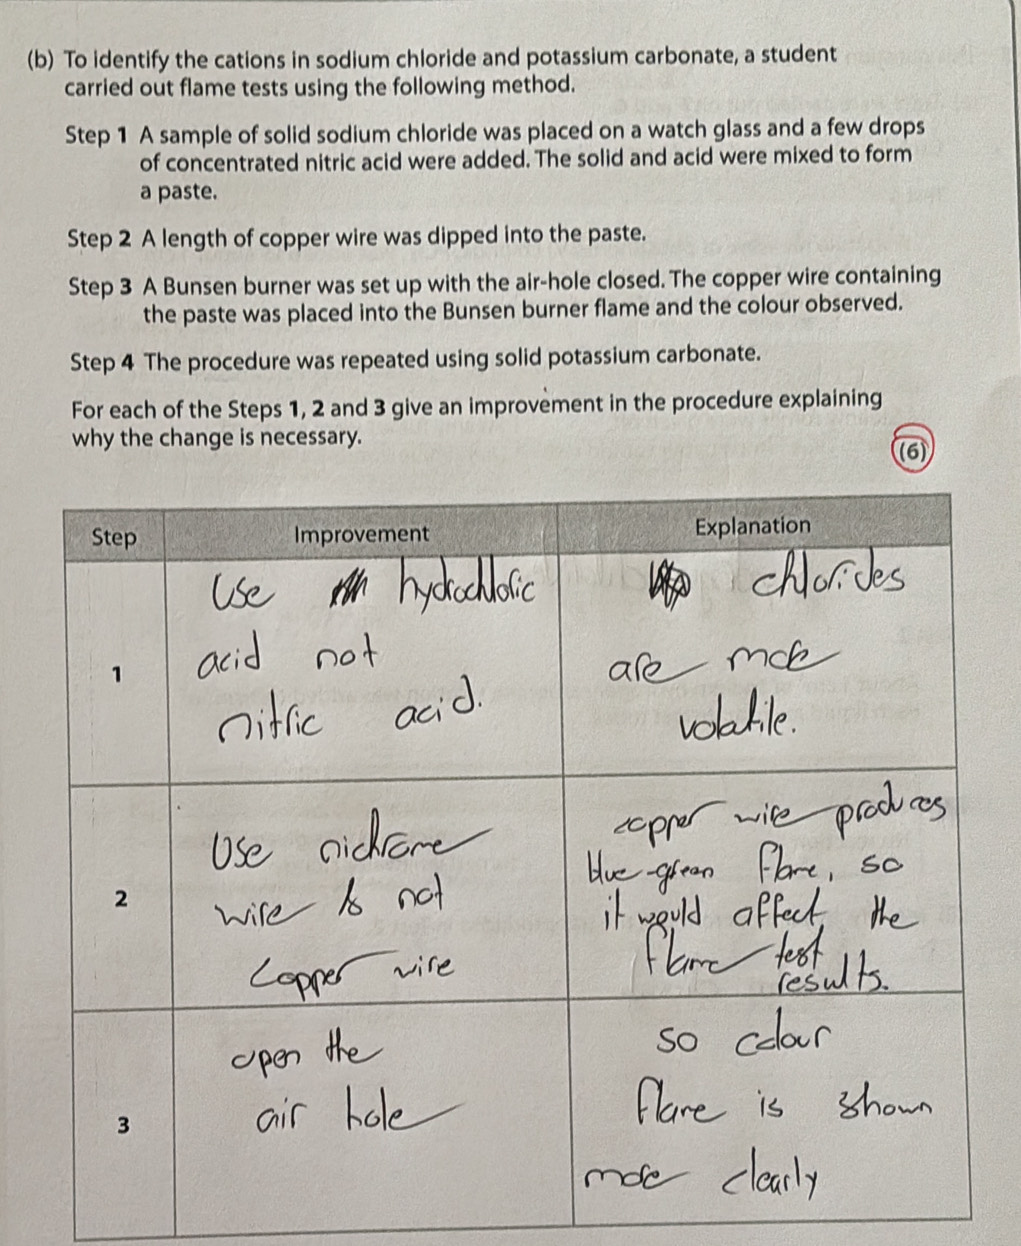 (b) To identify the cations in sodium chloride and potassium carbonate, a student
carried out flame tests using the following method.
Step 1 A sample of solid sodium chloride was placed on a watch glass and a few drops
of concentrated nitric acid were added. The solid and acid were mixed to form
a paste.
Step 2 A length of copper wire was dipped into the paste.
Step 3 A Bunsen burner was set up with the air-hole closed. The copper wire containing
the paste was placed into the Bunsen burner flame and the colour observed.
Step 4 The procedure was repeated using solid potassium carbonate.
For each of the Steps 1, 2 and 3 give an improvement in the procedure explaining
why the change is necessary.
(6)
Step Improvement Explanation
1
Use hydrochloric
acid not
nitric acid.
chlorides
are more
volatile.
2
Use nichrome
wire not
copper wire
copper wire produces
blue-green flame, so
it would affect the
flame test
results.
3
open the
air hole
so colour
flame is shown
more clearly